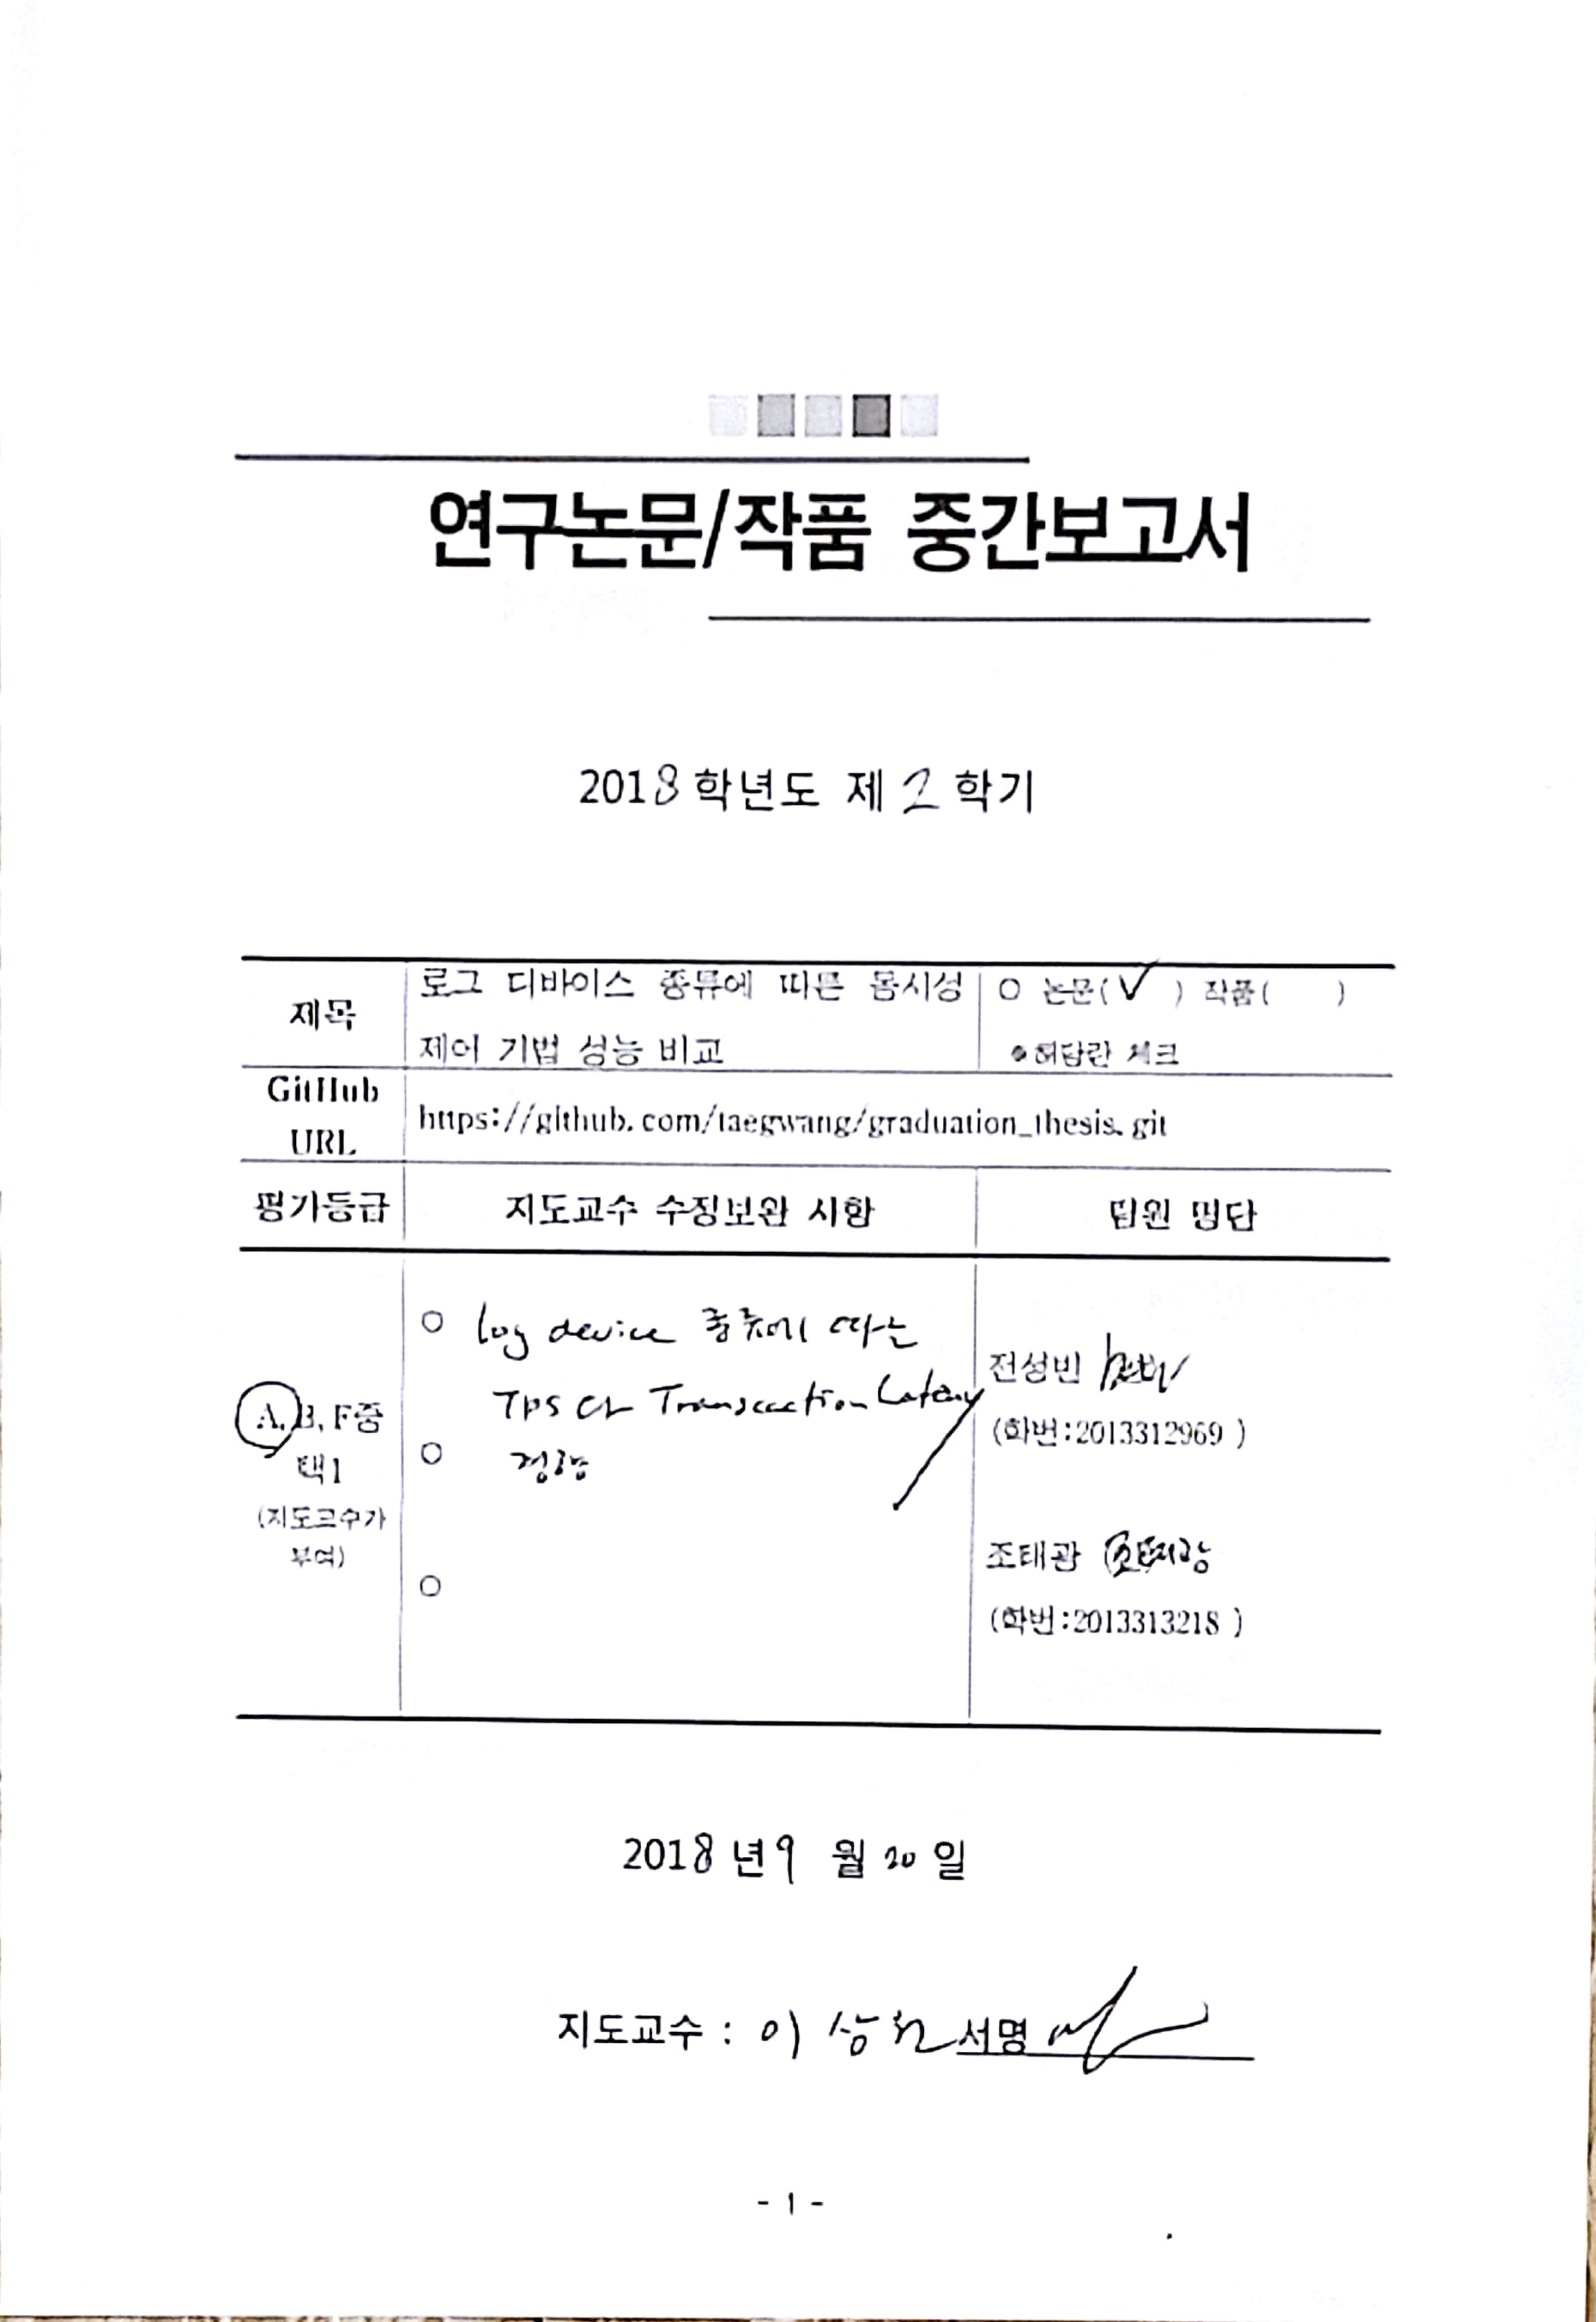 연구논문/작품 중간보고서
2018 학년도 제 2 학기
제목
로그 디바이스 종류에 따른 동시성
제어 기법 성능 비교
○ 논문( ✓ ) 작품( )
●해당란 체크
GitHub
URL
https://github.com/taegwang/graduation_thesis.git
평가등급
지도교수 수정보완 사항
팀원 명단
A, B, F중
택1
(지도교수가
부여)
○ log device 종류에 따른
TPS 와 Transaction Latency
○
○
전성빈
(학번:2013312969 )
조태광 조태광
(학번:2013313218 )
2018 년 9 월 20 일
지도교수 : 이상원 서명
- 1 -